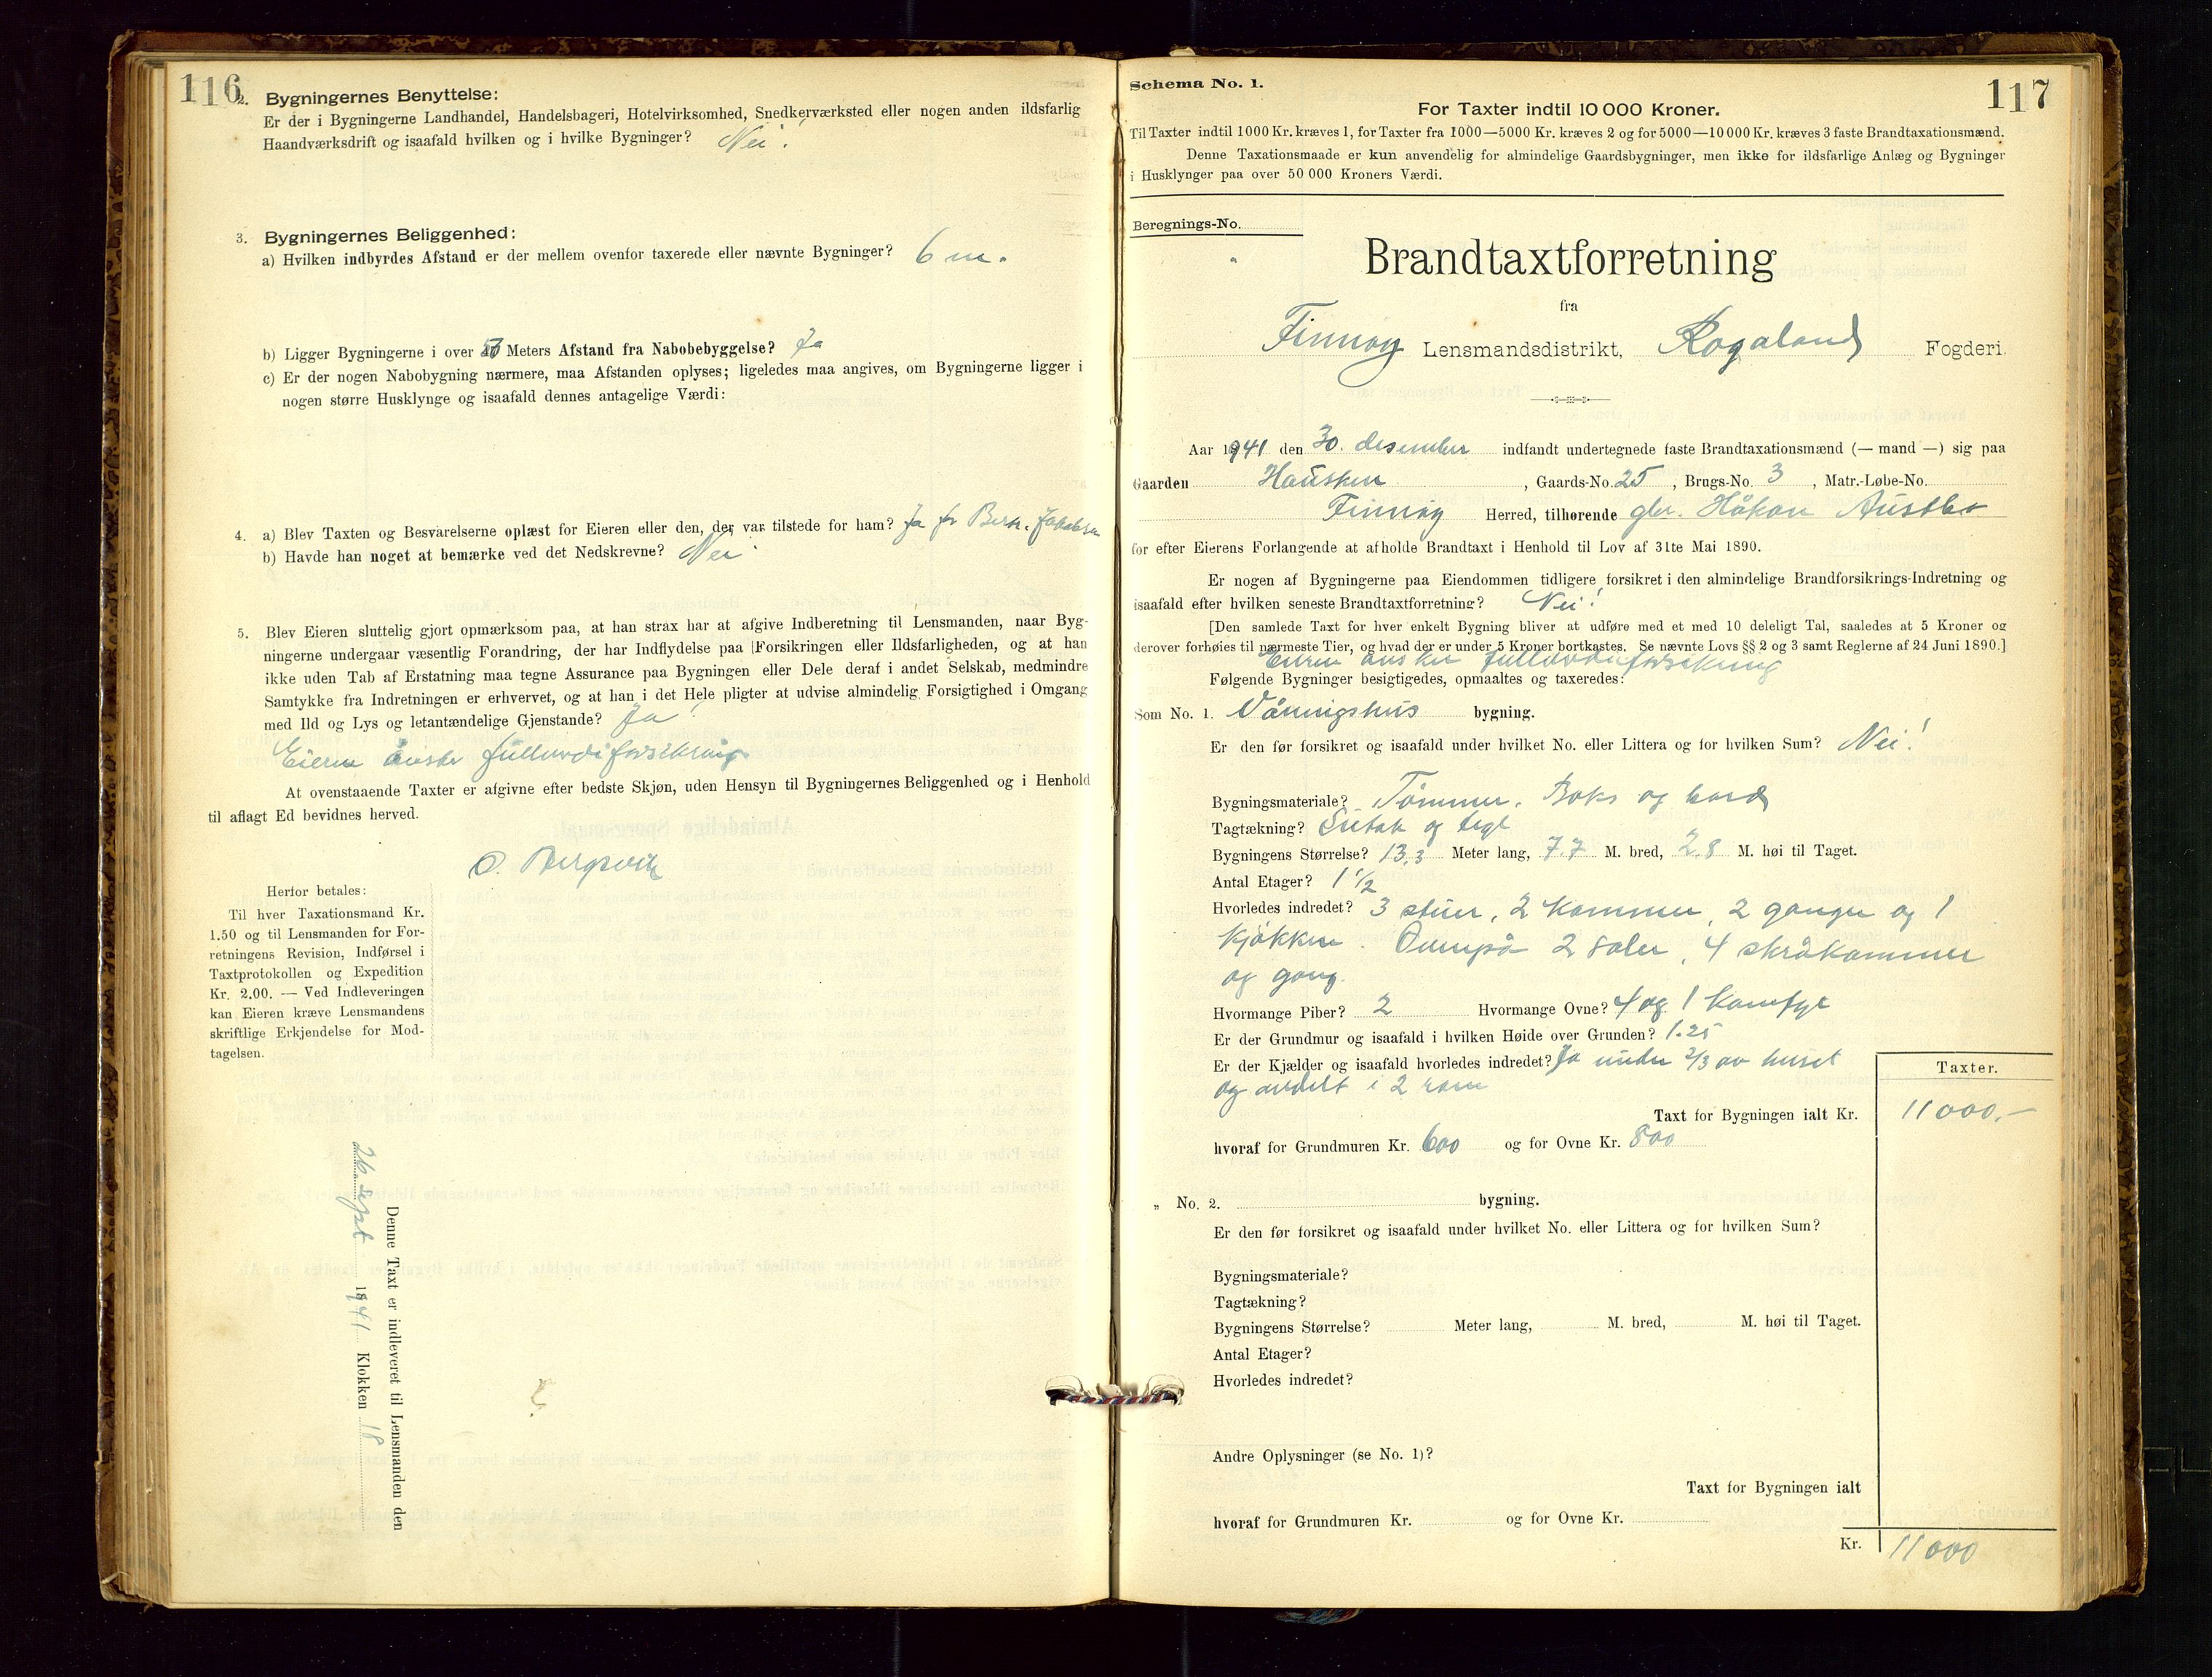 116
2. Bygningernes Benyttelse:
Er der i Bygningerne Landhandel, Handelsbageri, Hotelvirksomhed, Snedkerværksted eller nogen anden ildsfarlig
Haandværksdrift og isaafald hvilken og i hvilke Bygninger? Nei!
3. Bygningernes Beliggenhed:
a) Hvilken indbyrdes Afstand er der mellem ovenfor taxerede eller nævnte Bygninger? 6 m.
b) Ligger Bygningerne i over Meters Afstand fra Nabobebyggelse? Ja
c) Er der nogen Nabobygning nærmere, maa Afstanden oplyses; ligeledes maa angives, om Bygningerne ligger i
nogen større Husklynge og isaafald dennes antagelige Værdi:
4. a) Blev Taxten og Besvarelserne oplæst for Eieren eller den, der var tilstede for ham? Ja for Bern. Jakobsen
b) Havde han noget at bemærke ved det Nedskrevne? Nei
5. Blev Eieren sluttelig gjort opmærksom paa, at han strax har at afgive Indberetning til Lensmanden, naar Byg-
ningerne undergaar væsentlig Forandring, der har Indflydelse paa Forsikringen eller Ildsfarligheden, og at han
ikke uden Tab af Erstatning maa tegne Assurance paa Bygningen eller Dele deraf i andet Selskab, medmindre
Samtykke fra Indretningen er erhvervet, og at han i det Hele pligter at udvise almindelig Forsigtighed i Omgang
med Ild og Lys og letantændelige Gjenstande? Ja!
Eieren ønsker fullverdiforsikring
At ovenstaaende Taxter er afgivne efter bedste Skjøn, uden Hensyn til Bygningernes Beliggenhed og i Henhold
til aflagt Ed bevidnes herved.
O. Bergsvik
Herfor betales:
Til hver Taxationsmand Kr.
1.50 og til Lensmanden for For-
retningens Revision, Indførsel i
Taxtprotokollen og Expedition
Kr. 2.00. — Ved Indleveringen
kan Eieren kræve Lensmandens
skriftlige Erkjendelse for Mod-
tagelsen.
Denne Taxt er indleveret til Lensmanden den
26 sept 1941 Klokken 18
117
Schema No. 1.
For Taxter indtil 10 000 Kroner.
Til Taxter indtil 1000 Kr. kræves 1, for Taxter fra 1000—5000 Kr. kræves 2 og for 5000—10 000 Kr. kræves 3 faste Brandtaxationsmænd.
Denne Taxationsmaade er kun anvendelig for almindelige Gaardsbygninger, men ikke for ildsfarlige Anlæg og Bygninger
i Husklynger paa over 50 000 Kroners Værdi.
Beregnings-No.
Brandtaxtforretning
fra
Finnøy Lensmandsdistrikt, Rogaland Fogderi.
Aar 1941 den 30. desember indfandt undertegnede faste Brandtaxationsmænd (— mand —) sig paa
Gaarden Hausken, Gaards-No. 25, Brugs-No. 3, Matr.-Løbe-No.
Finnøy Herred, tilhørende gbr. Håkon Austbø
for efter Eierens Forlangende at afholde Brandtaxt i Henhold til Lov af 31te Mai 1890.
Er nogen af Bygningerne paa Eiendommen tidligere forsikret i den almindelige Brandforsikrings-Indretning og
isaafald efter hvilken seneste Brandtaxtforretning? Nei!
[Den samlede Taxt for hver enkelt Bygning bliver at udføre med et med 10 deleligt Tal, saaledes at 5 Kroner og
derover forhøies til nærmeste Tier, og hvad der er under 5 Kroner bortkastes. Se nævnte Lovs §§ 2 og 3 samt Reglerne af 24 Juni 1890.]
Eieren ønsker fullverdiforsikring
Følgende Bygninger besigtigedes, opmaaltes og taxeredes:
Som No. 1. Våningshus bygning.
Er den før forsikret og isaafald under hvilket No. eller Littera og for hvilken Sum? Nei!
Bygningsmateriale? Tømmer. Boks og bord
Tagtækning? og tegl
Bygningens Størrelse? 13.3 Meter lang, 7.7 M. bred, 2.8 M. høi til Taget.
Antal Etager? 1 1/2
Hvorledes indredet? 3 stuer, 2 kammer, 2 ganger og 1
kjøkken. Ovenpå 2 saler, 4 skråkammer
og gang.
Hvormange Piber? 2 Hvormange Ovne? 4 og 1 komfyr
Er der Grundmur og isaafald i hvilken Høide over Grunden? 1.25
Er der Kjælder og isaafald hvorledes indredet? Ja under 2/3 av huset
og avdelt i 2 rom
Taxter.
Taxt for Bygningen ialt Kr. 11000.-
hvoraf for Grundmuren Kr. 600 og for Ovne Kr. 800
„ No. 2. bygning.
Er den før forsikret og isaafald under hvilket No. eller Littera og for hvilken Sum?
Bygningsmateriale?
Tagtækning?
Bygningens Størrelse? Meter lang, M. bred, M. høi til Taget.
Antal Etager?
Hvorledes indredet?
Andre Oplysninger (se No. 1)?
Taxt for Bygningen ialt
hvoraf for Grundmuren Kr. og for Ovne Kr.
Kr. 11000